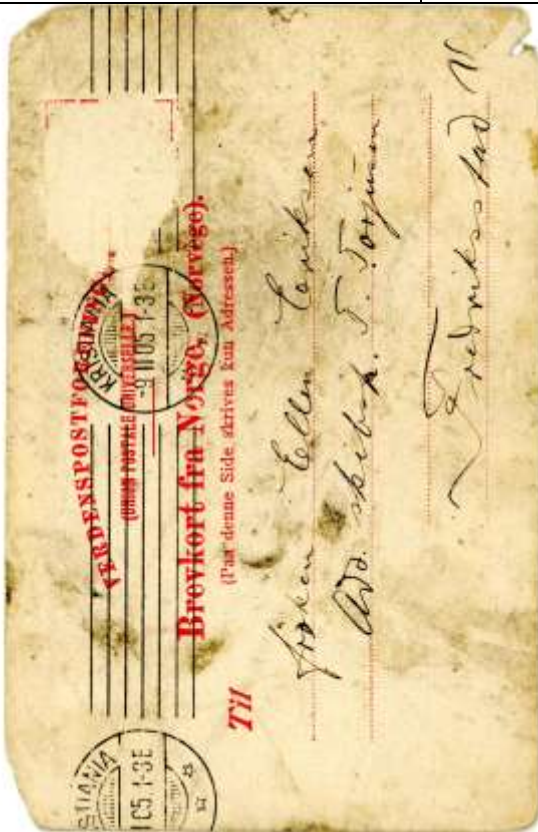 VERDENSPOSTFORENINGEN
(UNION POSTALE UNIVERSELLE.)
Brevkort fra Norge, (Norvège).
(Paa denne Side skrives kun Adressen.)
KRISTIANIA
-9 II 05 1-3E
STIANIA
I 05 1-3E
Til
frøken Ellen Eriksen
Adr. skibsk. T. Torjusen
Fredriksstad